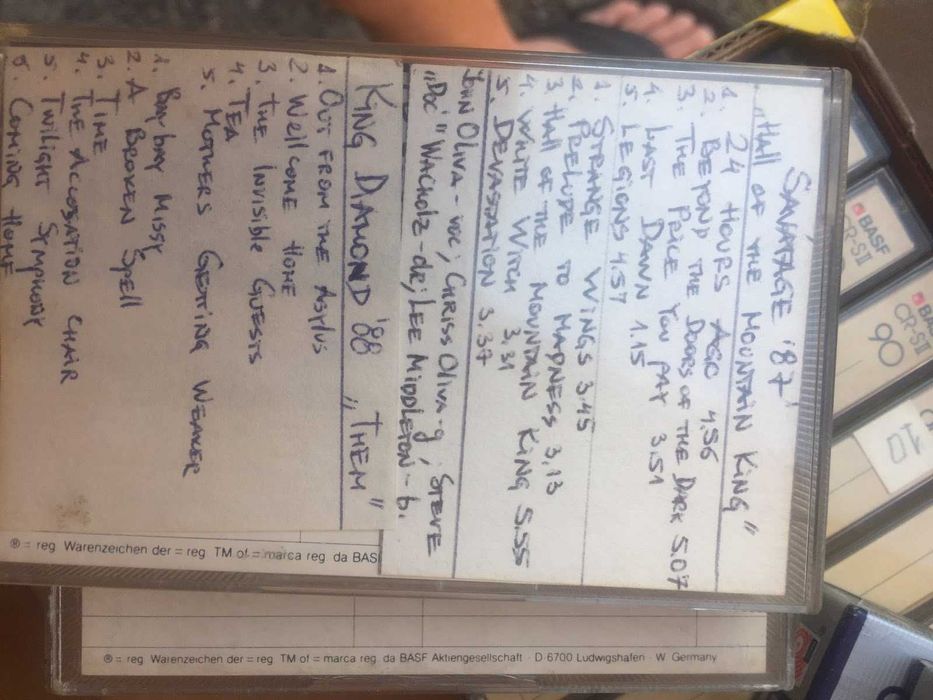 SAVATAGE '87
„Hall of the Mountain King"
1. 24 HOURS AGO 4.56
2. BEYOND THE DOORS OF THE DARK 5.07
3. THE PRICE YOU PAY 3.51
4. LAST DAWN 1.15
5. LEGIONS 4.57
1. STRANGE WINGS 3.45
2. PRELUDE TO MADNESS 3.13
3 HALL OF THE MOUNTAIN KING 5.55
4. WHITE WITCH 3.31
5. DEVASTATION 3.37
JOHN OLIVA - voc; CHRISS OLIVA-g; STEVE
„Doc" WACHOLZ-dr; LEE MIDDLETON-b.
KING DIAMOND '88 „THEM"
1. OUT FROM THE ASYLUS
2. WELLCOME HOME
3. THE INVISIBLE GUESTS
4. TEA
5. MOTHERS GETTING WEAKER
1. Bay bay Missy
2. A BROKEN SPELL
3. TIME
4. THE ACCUSATION CHAIR
5. TWILIGHT SYMPHONY
6. COMING HOME
® = reg Warenzeichen der = reg TM of = marca reg. da BAS
® = reg Warenzeichen der = reg. TM of = marca reg. da BASF Aktiengesellschaft · D 6700 Ludwigshafen · W. Germany
BASF
CR-SII
BAS
CR-SII
90
10